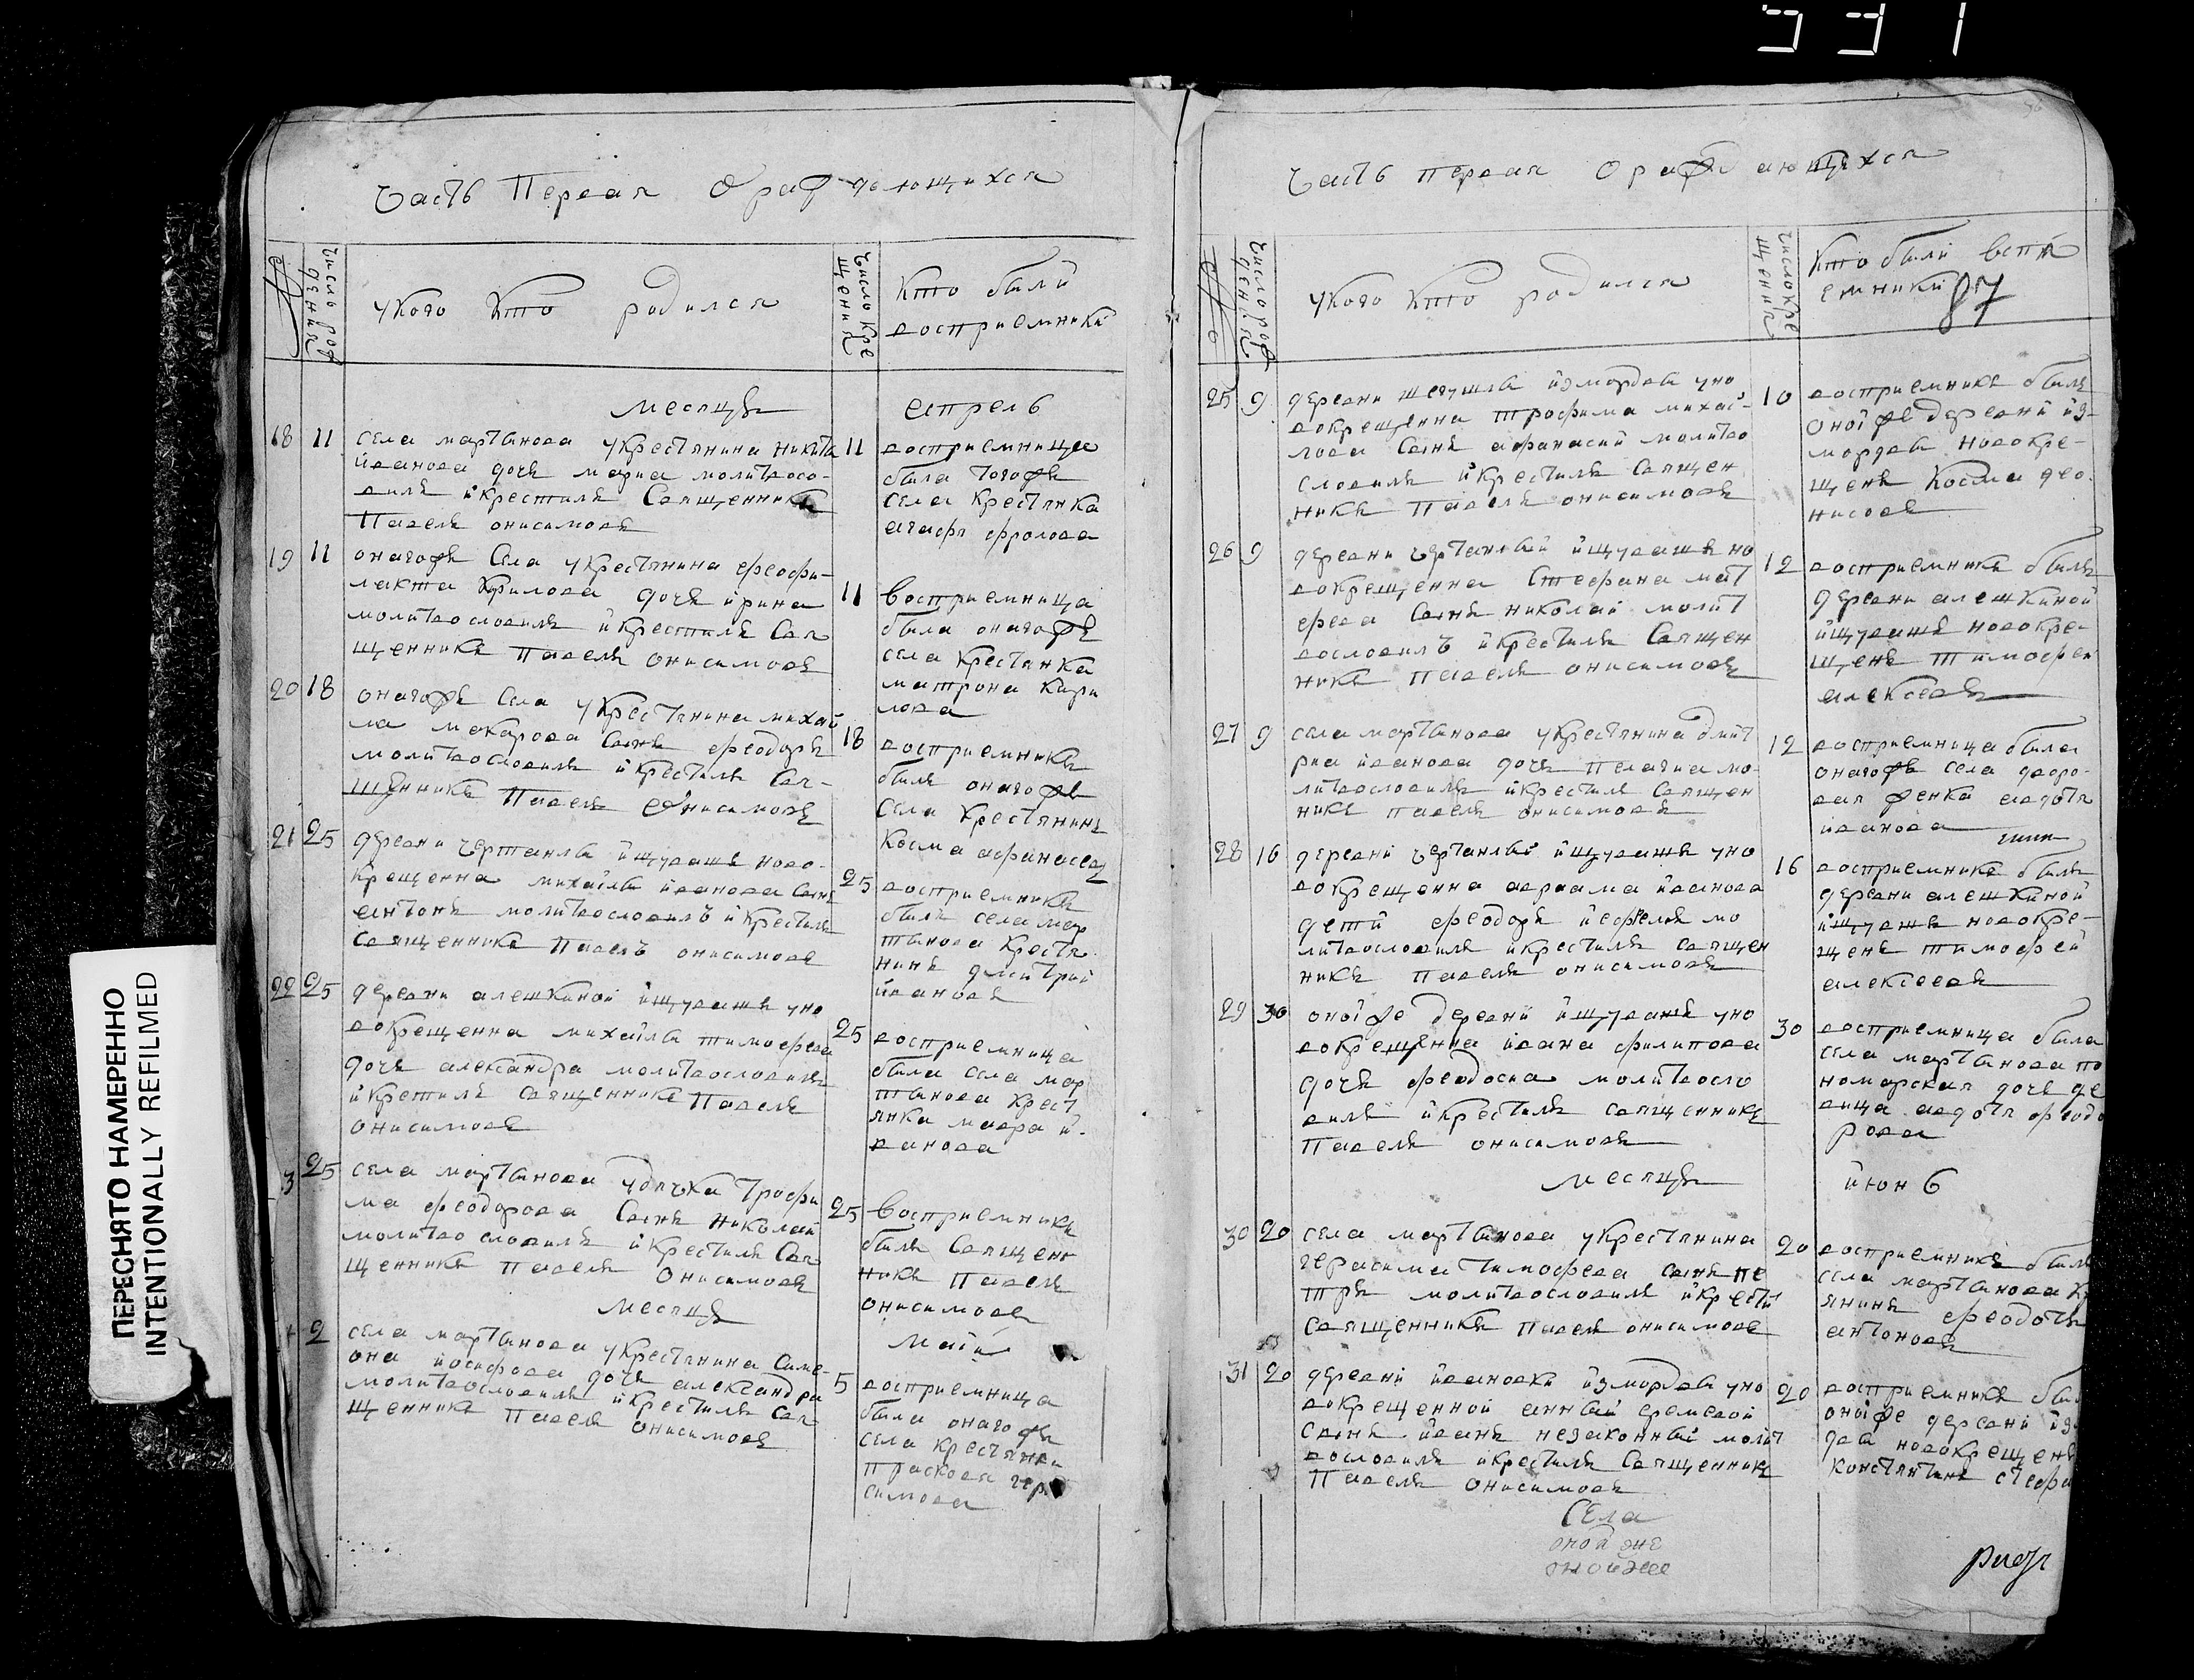 331
ПЕРЕСНЯТО НАМЕРЕННО
INTENTIONALLY REFILMED
Часть Первая О раждающихся
№
число рождения
укого кто родился
число крещения
кто были
восприемники
месяцъ
епрель
18 11
села мартынова укрестьянина никита
иванова дочь мариа молитвосло-
вилъ икрестилъ Священникъ
Павелъ онисимовъ
11
восприемница
была тогожъ
села крестьянка
агафя фролова
19 11
онагожъ Села укрестьянина феофи-
лакта Кирилова дочь ирина
молитвословилъ икрестилъ Свя
щенникъ Павелъ онисимовъ
11
восприемница
была онагожъ
села крестьянка
матрона кири
лова
20 18
онагожъ Села укрестьянина михай
ла макарова Сынъ феодоръ
молитвословилъ икрестилъ Свя-
щенникъ Павелъ Онисимовъ
18
восприемникъ
былъ онагожъ
Села крестьянинъ
Косма афанасевъ
21 25
деревни чертанлы ищувашъ ново-
крещенна михайлы иванова Сынъ
антонъ молитвословилъ икрестилъ
Священникъ Павелъ онисимовъ
25
восприемникъ
былъ села мар
тынова крестья
нинъ дмитрий
ивановъ
22 25
деревни алешкиной ищувашъ уно
вокрещенна михайлы тимофева
дочь александра молитвословилъ
икрестилъ Священникъ Павелъ
онисимовъ
25
восприемница
была села мар
тынова крест
янка мавра и-
ванова
3 25
села мартынова удячка Трофи
ма феодорова Сынъ николай
молитвословилъ икрестилъ Свя
щенникъ Павелъ Онисимовъ
25
восприемникъ
былъ Священ
никъ Павелъ
онисимовъ
месяцъ
май
2
села мартынова укрестьянина Симе-
она иосифова дочь александра
молитвословилъ икрестилъ Свя
щенникъ Павелъ онисимовъ
5
восприемница
была онагожъ
села крестьянка
Прасковя гера
симова
Часть первая О раждающихся
№
число рождения
укого кто родился
число крещения
кто были воспри
емники
87
25 9
деревни измордвы уно
вокрещенна трофима михай-
лова Сынъ афанасий молитво
словилъ икрестилъ Священ
никъ Павелъ онисимовъ
10
восприемникъ былъ
оной же деревни из-
мордвы новокре-
щенъ Косма део-
нисовъ
26 9
деревни чертанлы ищувашъ но
вокрещенна Стефана мат
фева Сынъ николай молит
вословилъ икрестилъ Священ
никъ Павелъ онисимовъ
12
восприемникъ былъ
деревни алешкиной
ищувашъ новокре-
щенъ Тимофей
алексеевъ
27 9
села мартынова укрестьянина дмит
риа иванова дочь Пелагиа мо-
литвословилъ икрестилъ Священ
никъ павелъ онисимовъ
12
восприемница была
онагожъ села дворо-
вая женка авдотя
иванова
28 16
деревни чертанлы ищувашъ уно
вокрещенна авраама иванова
дети феодоръ иефремъ мо
литвословилъ икрестилъ священ
никъ Павелъ онисимовъ
16
восприемникъ былъ
деревни алешкиной
ищувашъ новокре-
щенъ тимофей
алексеевъ
29 30
онойже деревни ищувашъ уно
вокрещенна ивана филипова
дочь феодосиа молитвосло
вилъ икрестилъ священникъ
Павелъ онисимовъ
30
восприемница была
села мартынова по
номарская дочь де
вица авдотя феодо
рова
месяцъ
июнь
30 20
села мартынова укрестьянина
герасима Тимофева сынъ пе
тръ молитвословилъ икрести
Священникъ Павелъ онисимовъ
20
восприемникъ былъ
села мартынова кр
янинъ феодотъ
антоновъ
31 20
деревни ивановки измордвы уно
вокрещенной анны еремевой
Сынъ иванъ незаконный молит
вословилъ икрестилъ Священникъ
Павелъ онисимовъ
20
восприемникъ был
онойже деревни из
двы новокрещенъ
константинъ стефа
Села
онойже
онойже